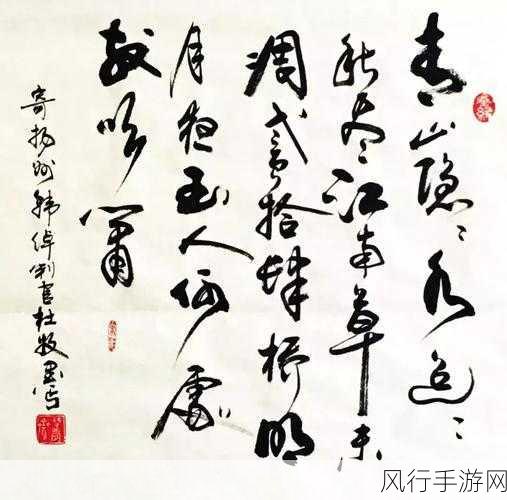 青山隐〻水迢〻
秋尽江南草未
凋贰拾肆桥明
月夜玉人何處
教吹箫
寄扬州韩绰判官杜牧墨写
风行手游网